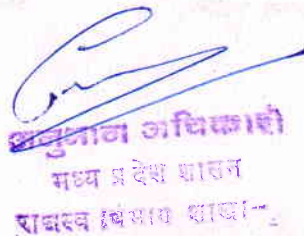 अनुभाग अधिकारी
मध्य प्रदेश शासन
राजस्व विभाग शाखा--